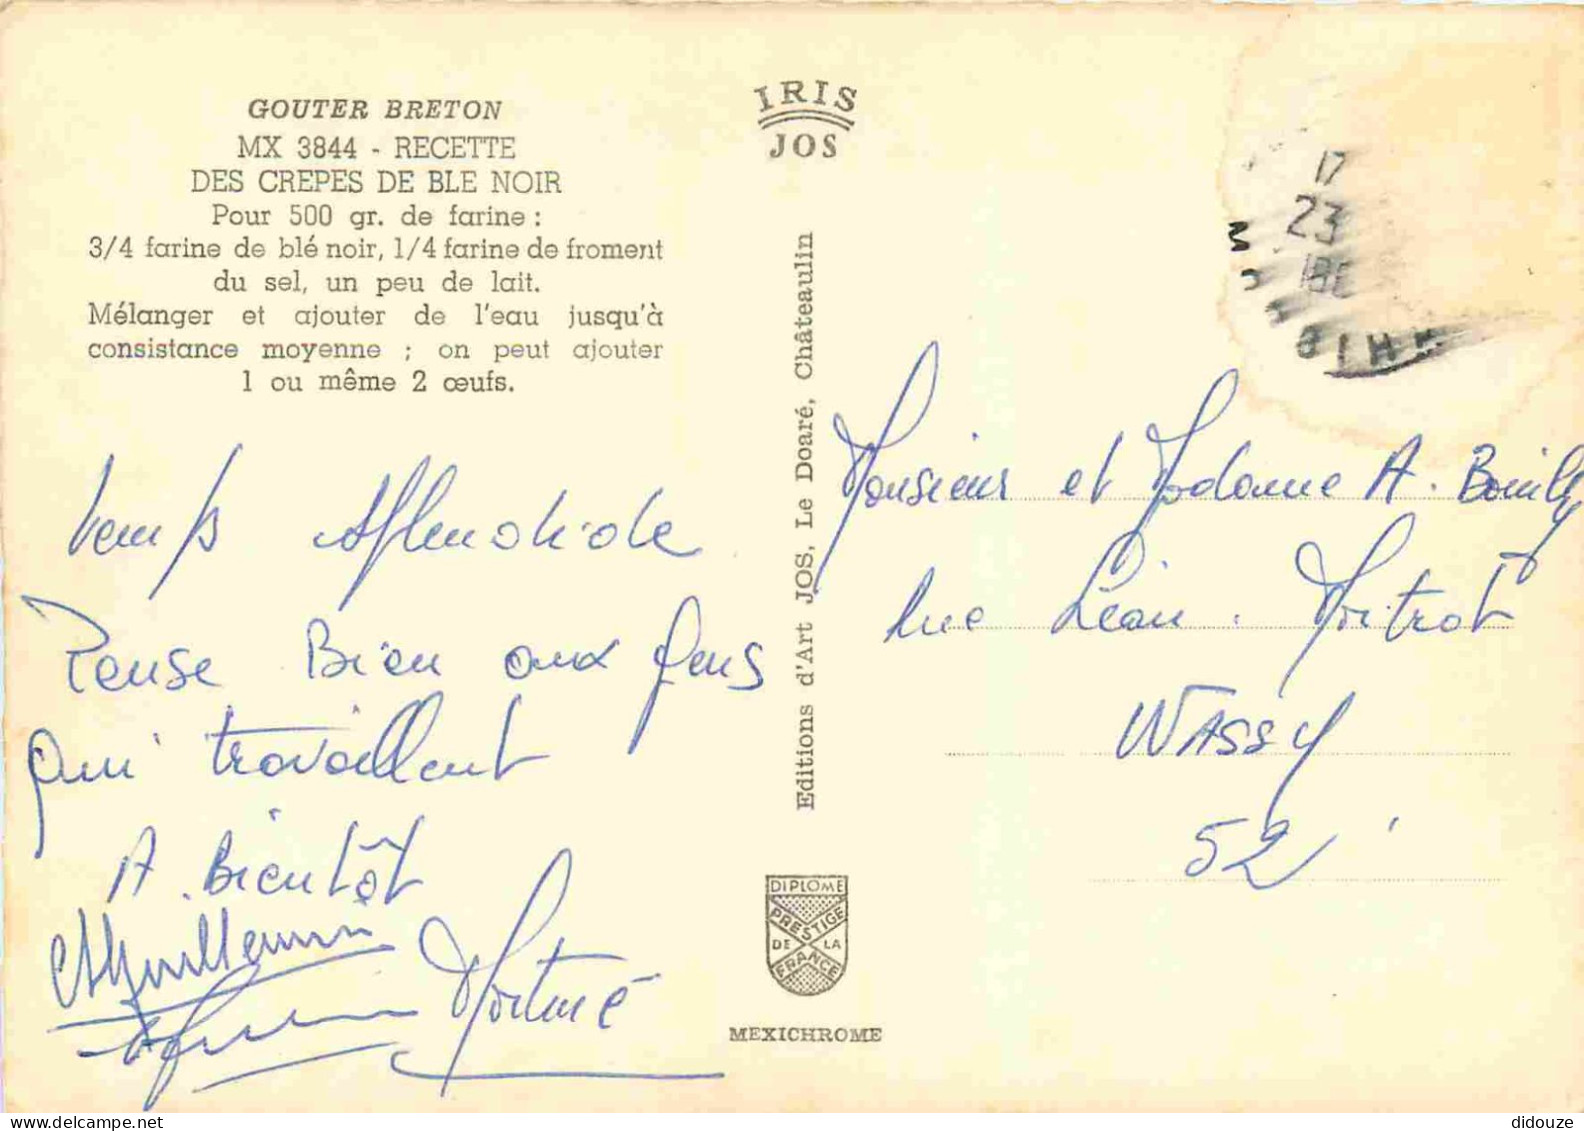 GOUTER BRETON
MX 3844 - RECETTE
DES CREPES DE BLE NOIR
Pour 500 gr. de farine :
3/4 farine de blé noir, 1/4 farine de froment
du sel, un peu de lait.
Mélanger et ajouter de l'eau jusqu'à
consistance moyenne ; on peut ajouter
1 ou même 2 œufs.
Temps splendide
Pense Bien aux gens
qui travaillent
A. Bientôt
Guillemin
IRIS
JOS
Editions d'Art JOS, Le Doaré, Châteaulin
DIPLOME
PRESTIGE
DE LA
FRANCE
MEXICHROME
17
23
Monsieur et Madame A. Bouilly
rue Léon. Mortrot
WASSY
52
didouze